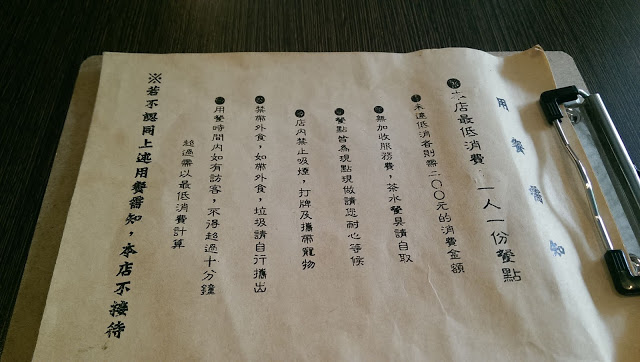 用餐需知
本店最低消費 一人一份餐點
未達低消者則需二〇〇元的消費金額
無加收服務費，茶水餐具請自取
餐點皆為現點現做請您耐心等候
店內禁止吸煙，打牌及攜帶寵物
禁帶外食，如帶外食，垃圾請自行攜出
用餐時間內如有訪客，不得超過十分鐘
超過需以最低消費計算
※若不認同上述用餐需知，本店不接待